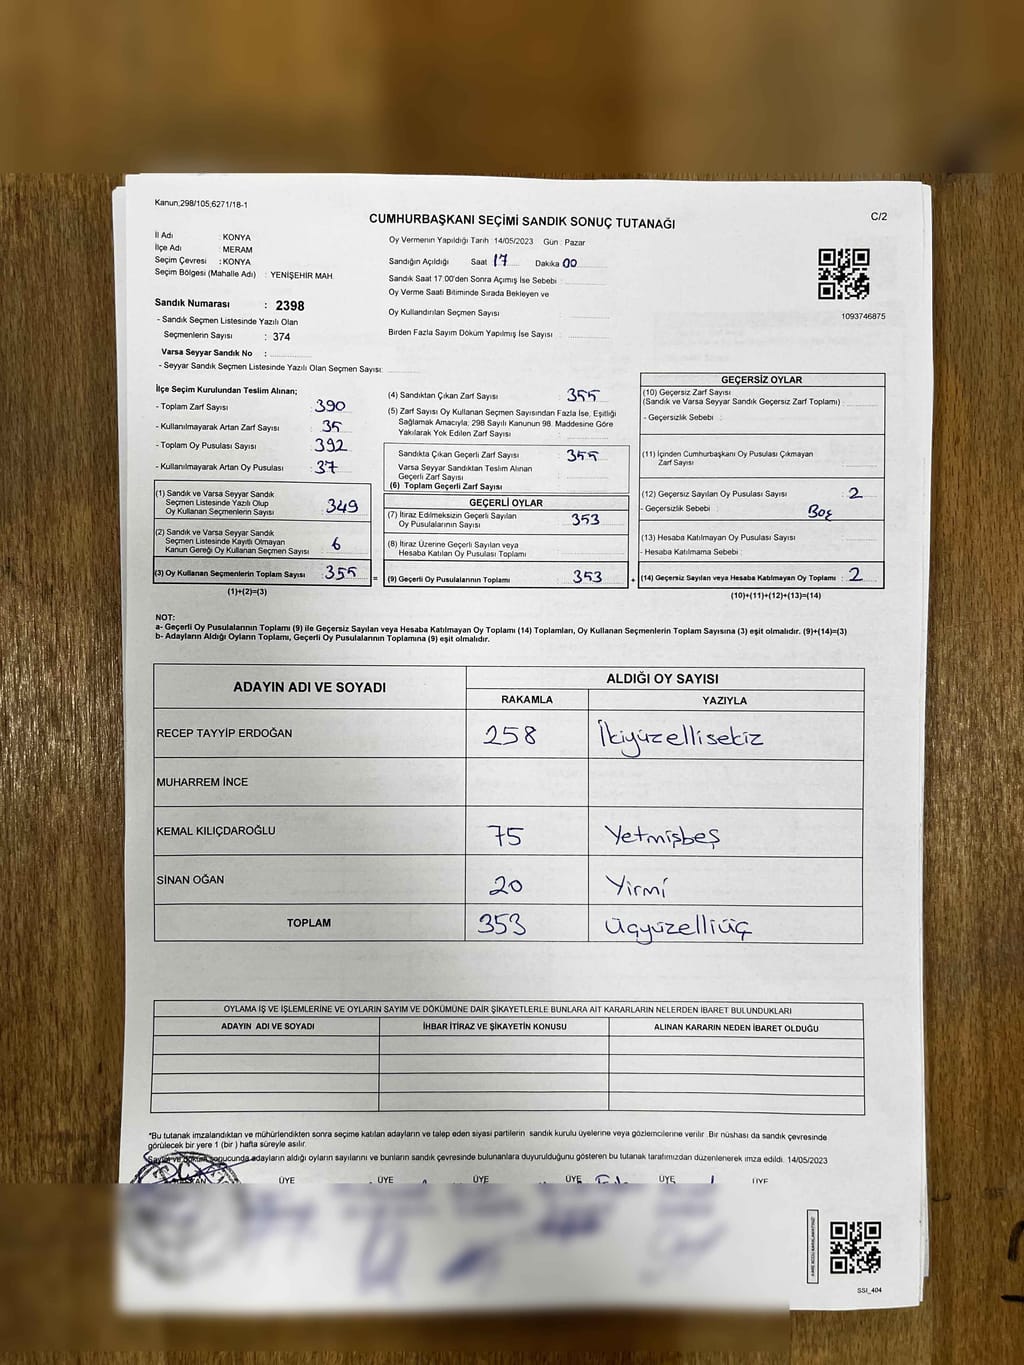 Kanun,298/105,6271/18-1
C/2
CUMHURBAŞKANI SEÇİMİ SANDIK SONUÇ TUTANAĞI
İl Adı : KONYA
İlçe Adı : MERAM
Seçim Çevresi : KONYA
Seçim Bölgesi (Mahalle Adı) : YENİŞEHİR MAH.
Sandık Numarası : 2398
- Sandık Seçmen Listesinde Yazılı Olan
Seçmenlerin Sayısı : 374
Varsa Seyyar Sandık No :
- Seyyar Sandık Seçmen Listesinde Yazılı Olan Seçmen Sayısı:
Oy Vermenin Yapıldığı Tarih : 14/05/2023 Gün : Pazar
Sandığın Açıldığı Saat 17 Dakika 00
Sandık Saat 17:00'den Sonra Açımış İse Sebebi :
Oy Verme Saati Bitiminde Sırada Bekleyen ve
Oy Kullandırılan Seçmen Sayısı :
Birden Fazla Sayım Döküm Yapılmış İse Sayısı :
1093746875
İlçe Seçim Kurulundan Teslim Alınan;
- Toplam Zarf Sayısı : 390
- Kullanılmayarak Artan Zarf Sayısı : 35
- Toplam Oy Pusulası Sayısı : 392
- Kullanılmayarak Artan Oy Pusulası : 37
(1) Sandık ve Varsa Seyyar Sandık
Seçmen Listesinde Yazılı Olup
Oy Kullanan Seçmenlerin Sayısı : 349
(2) Sandık ve Varsa Seyyar Sandık
Seçmen Listesinde Kayıtlı Olmayan
Kanun Gereği Oy Kullanan Seçmen Sayısı : 6
(3) Oy Kullanan Seçmenlerin Toplam Sayısı : 355 =
(1)+(2)=(3)
(4) Sandıktan Çıkan Zarf Sayısı : 355
(5) Zarf Sayısı Oy Kullanan Seçmen Sayısından Fazla İse, Eşitliği
Sağlamak Amacıyla; 298 Sayılı Kanunun 98. Maddesine Göre
Yakılarak Yok Edilen Zarf Sayısı :
Sandıkta Çıkan Geçerli Zarf Sayısı : 355
Varsa Seyyar Sandıktan Teslim Alınan
Geçerli Zarf Sayısı :
(6) Toplam Geçerli Zarf Sayısı
GEÇERLİ OYLAR
(7) İtiraz Edilmeksizin Geçerli Sayılan
Oy Pusulalarının Sayısı : 353
(8) İtiraz Üzerine Geçerli Sayılan veya
Hesaba Katılan Oy Pusulası Toplamı :
(9) Geçerli Oy Pusulalarının Toplamı : 353 +
GEÇERSİZ OYLAR
(10) Geçersiz Zarf Sayısı
(Sandık ve Varsa Seyyar Sandık Geçersiz Zarf Toplamı) :
- Geçersizlik Sebebi :
(11) İçinden Cumhurbaşkanı Oy Pusulası Çıkmayan
Zarf Sayısı :
(12) Geçersiz Sayılan Oy Pusulası Sayısı : 2
- Geçersizlik Sebebi : Boş
(13) Hesaba Katılmayan Oy Pusulası Sayısı :
- Hesaba Katılmama Sebebi :
(14) Geçersiz Sayılan veya Hesaba Katılmayan Oy Toplamı : 2
(10)+(11)+(12)+(13)=(14)
NOT:
a- Geçerli Oy Pusulalarının Toplamı (9) ile Geçersiz Sayılan veya Hesaba Katılmayan Oy Toplamı (14) Toplamları, Oy Kullanan Seçmenlerin Toplam Sayısına (3) eşit olmalıdır. (9)+(14)=(3)
b- Adayların Aldığı Oyların Toplamı, Geçerli Oy Pusulalarının Toplamına (9) eşit olmalıdır.
ADAYIN ADI VE SOYADI
ALDIĞI OY SAYISI
RAKAMLA YAZIYLA
RECEP TAYYİP ERDOĞAN 258 İkiyüzellisekiz
MUHARREM İNCE
KEMAL KILIÇDAROĞLU 75 Yetmişbeş
SİNAN OĞAN 20 Yirmi
TOPLAM 353 Üçyüzelliüç
OYLAMA İŞ VE İŞLEMLERİNE VE OYLARIN SAYIM VE DÖKÜMÜNE DAİR ŞİKAYETLERLE BUNLARA AİT KARARLARIN NELERDEN İBARET BULUNDUKLARI
ADAYIN ADI VE SOYADI İHBAR İTİRAZ VE ŞİKAYETİN KONUSU ALINAN KARARIN NEDEN İBARET OLDUĞU
*Bu tutanak imzalandıktan ve mühürlendikten sonra seçime katılan adayların ve talep eden siyasi partilerin sandık kurulu üyelerine veya gözlemcilerine verilir. Bir nüshası da sandık çevresinde
görülecek bir yere 1 (bir ) hafta süreyle asılır.
Sayım ve döküm sonucunda adayların aldığı oyların sayılarını ve bunların sandık çevresinde bulunanlara duyurulduğunu gösteren bu tutanak tarafımızdan düzenlenerek imza edildi. 14/05/2023
ÜYE ÜYE ÜYE ÜYE ÜYE ÜYE
SSI_404